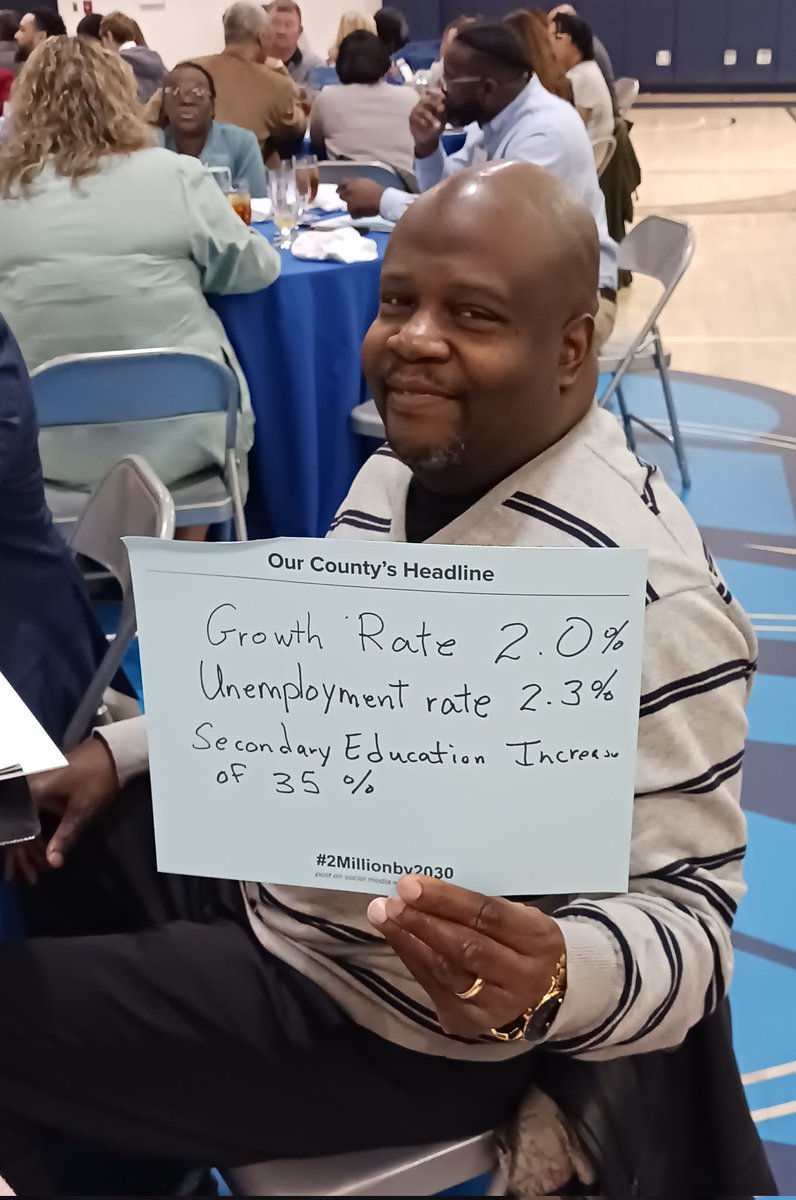 Our County's Headline
Growth Rate 2.0%
Unemployment rate 2.3%
Secondary Education Increase
of 35 %
#2Millionby2030
post on social media